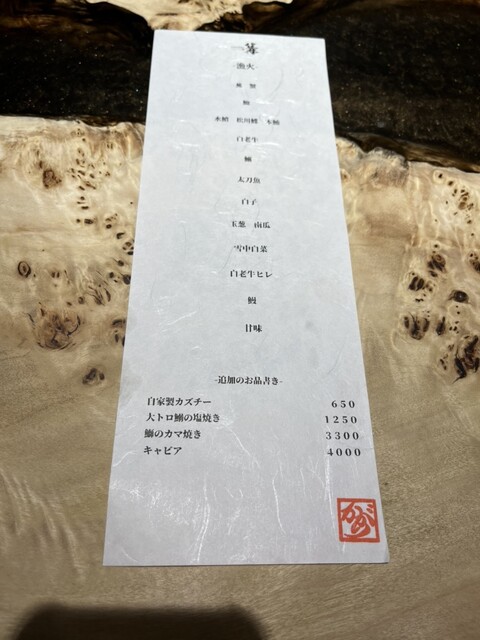 -漁火-
水蛸　松川鰈　本鮪
白老牛
太刀魚
白子
玉葱　南瓜
雪中白菜
白老牛ヒレ
鰻
甘味
-追加のお品書き-
自家製カズチー 650
大トロ鰤の塩焼き 1250
鰤のカマ焼き 3300
キャビア 4000